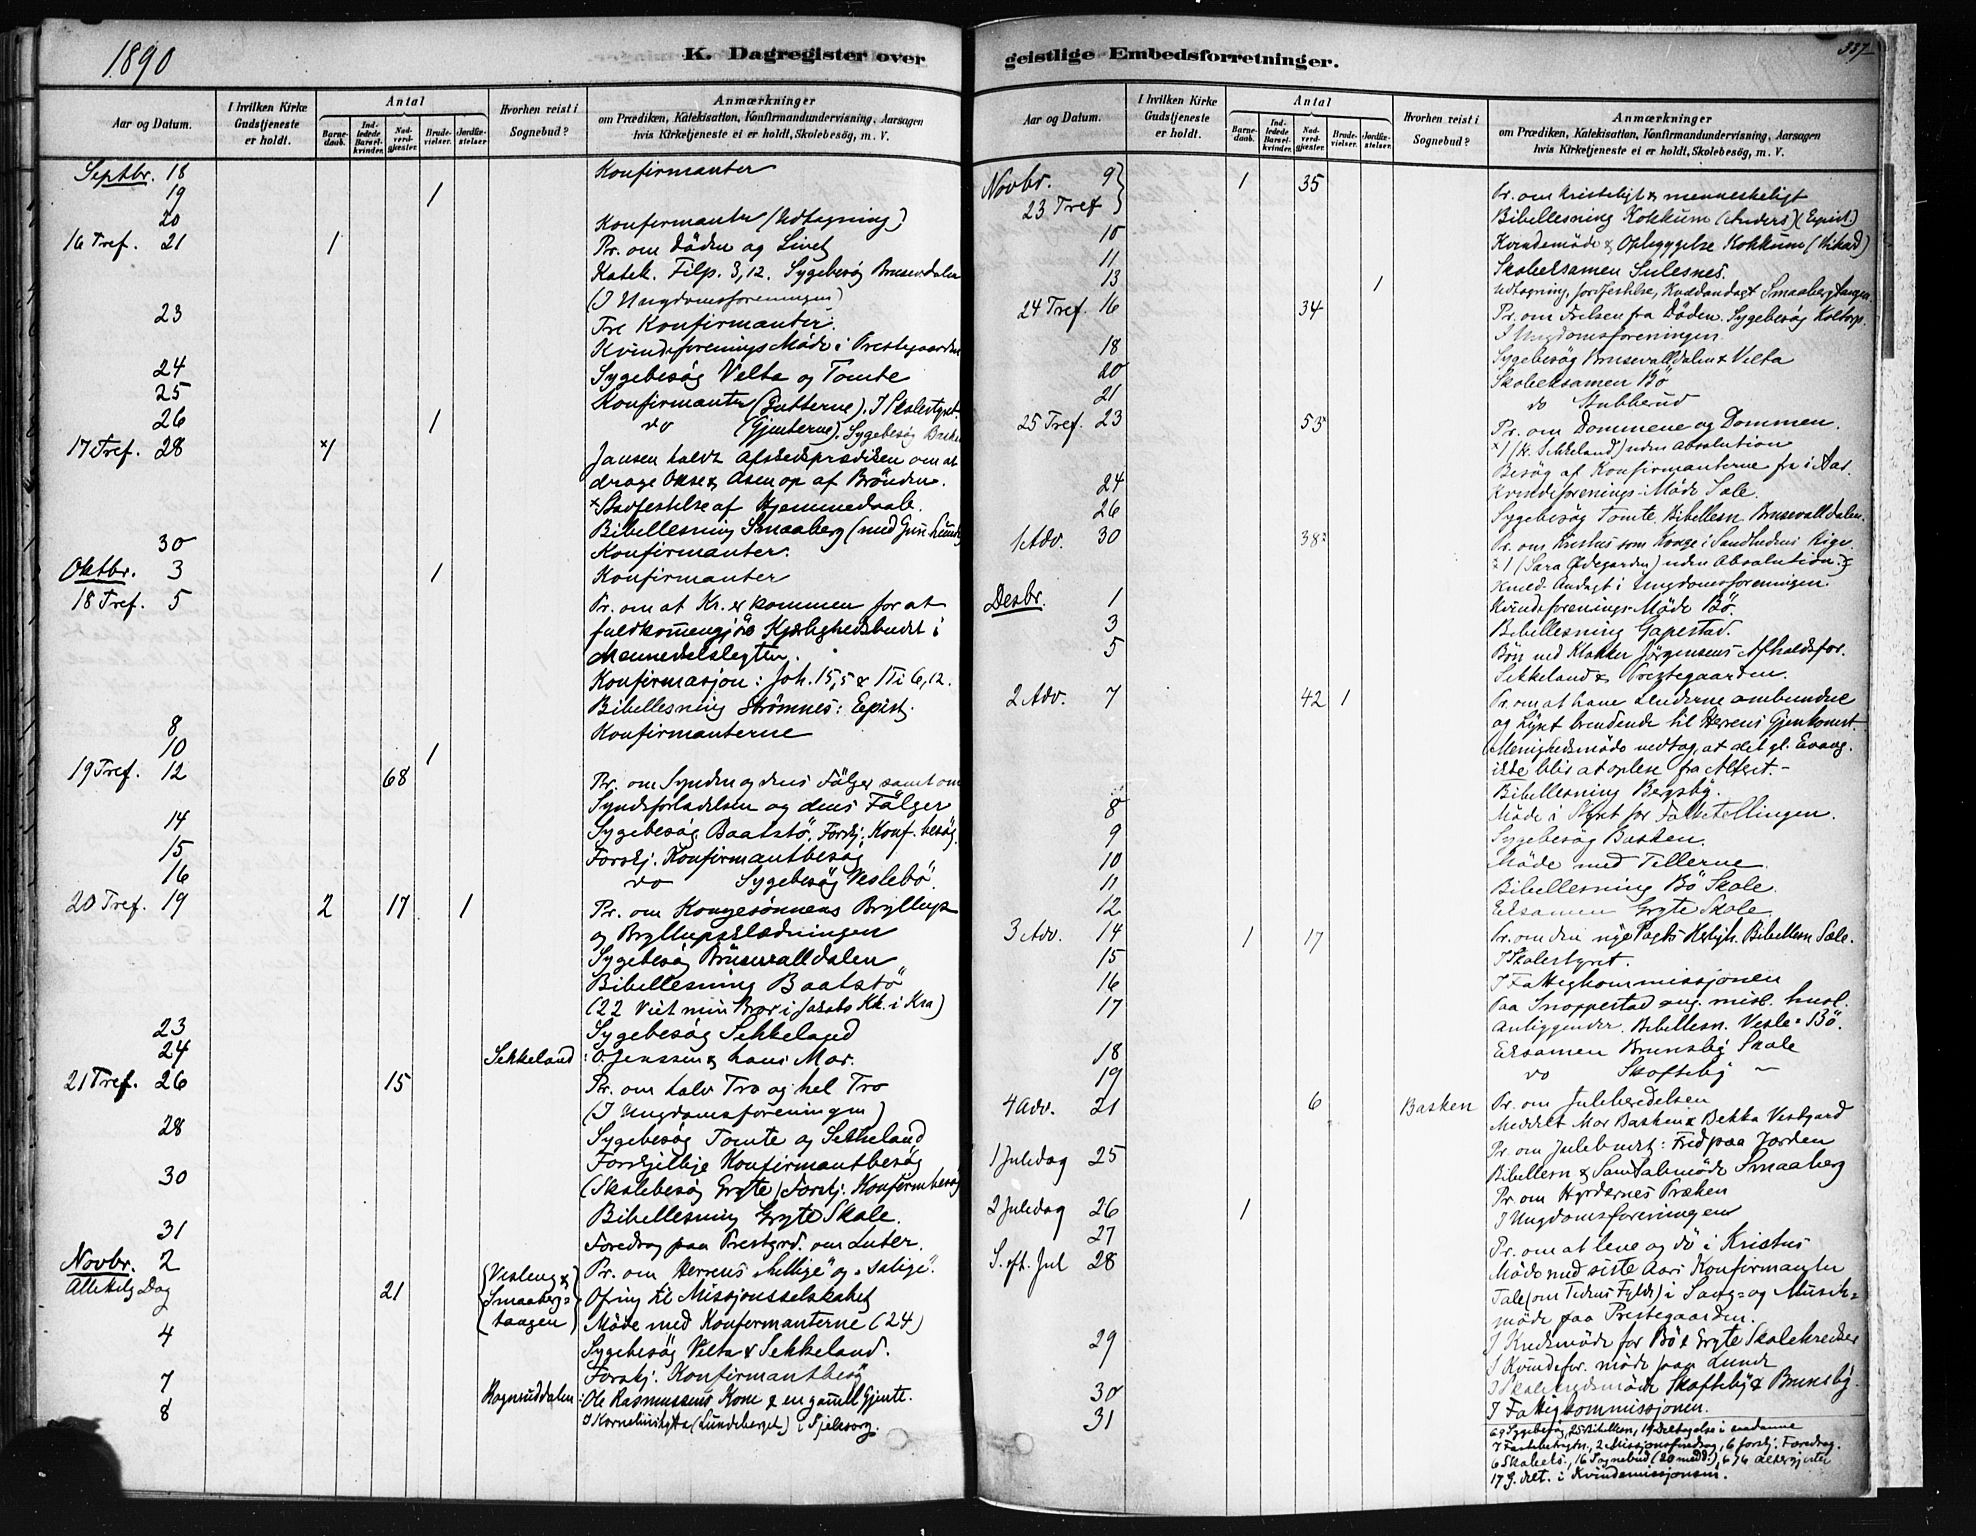 1890
K. Dagregister over
Aar og Datum.
I hvilken Kirke Gudstjeneste er holdt.
Antal
Barnedaab.
Indledede Barselkvinder.
Nadverdgjæster.
Brudevielser.
Jordfæstelser
Hvorhen reist i Sognebud?
Anmærkninger
om Prædiken, Katekisation, Konfirmandundervisning, Aarsagen
hvis Kirketjeneste ei er holdt, Skolebesøg, m. V.
Septbr. 18 Konfirmanter
19 1
20 Konfirmanter (Udtagning)
16 Tref. 21 1 Pr. om Döden og Livet
Katek. Filp. 3,12. Sygebesög Brusevdalen
(I Ungdomsforeningen)
23 Tre Konfirmanter.
Kvindeforenings Möde i Prestegaarden
24 Sygebesög Velta og Tomte
25 Konfirmanter (Gutterne). I Skolestyret.
26 1 do (Gjenterne). Sygebesög Basken
17 Tref. 28 x1 Jansen holdt Afskedsprædiken om at
drage Okse & Asen op af Brönden.
x Stadfestelse af Hjemmedaab.
Bibellesning Smaaberg (med
30 Konfirmanter.
Oktbr. 3 1 Konfirmanter
18 Tref. 5 Pr. om at Kr. er kommen for at
fuldkommengjöre Kjærlighedsbudet i
Menneskeslegten.
Konfirmasjon: Joh. 15,5 & 1 Ti 6,12.
Bibellesning Strømnes: Epist.
8 Konfirmanterne
10 1
19 Tref. 12 68 Pr. om Synden og dens Fölger samt om
Syndsforladelsen og dens Fölger
14 Sygebesög Baatstö, Forskj. Konf. besög.
15 Forskj. Konfirmantbesög
16 do Sygebesög Veslebö.
20 Tref. 19 2 17 1 Pr. om Kongesönnens Bryllup
og Bryllupsklædningen
Sygebesög Brusevalldalen
Bibellesning Baatstö
(22 Viet min Bror i Jakobs Kk. i Kra)
23 Sygebesög Sekkeland
24 Sekkeland : O. Jenssen & hans Mor.
21 Tref. 26 15 Pr. om halv Tro og hel Tro
(I Ungdomsforeningen)
28 Sygebesög Tomte og Sekkeland
Forskjellige Konfirmantbesög
30 (Skolebesög Gryte) Forskj. Konfirmbesög
Bibellesning Gryte Skole.
31 Foredrag paa Prestgrd. om Luter.
Novbr. 2 Pr. om "Herrens "hellige" og "salige".
Allehelg Dag 21 {Vesleng & Smaabergtangen} Ofring til Missjonsselskabet
Möde med Konfirmanterne (24)
4 Sygebesög Velta & Sekkeland.
7 Forskj. Konfirmantbesög
8 Bognruddalen : Ole Rasmussens Kone & en gammel Gjente.
I (Lundeberget) i Sjelesorg.
geistlige Embedsforretninger.
337
Aar og Datum.
I hvilken Kirke Gudstjeneste er holdt.
Antal
Barnedaab.
Indledede Barselkvinder.
Nadverdgjæster.
Brudevielser.
Jordfæstelser.
Hvorhen reist i Sognebud?
Anmærkninger
om Prædiken, Katekisation, Konfirmandundervisning, Aarsagen
hvis Kirketjeneste ei er holdt, Skolebesøg, m. V.
Novbr. 9 1 35 Pr. om kristeligt & menneskeligt
23 Tref Bibellesning Kokkum (Anders) (Epist.)
10 Kvindemöde & Opbyggelse Kokkum
11 Skoleeksamen Sulesnes.
13 1 Udtagning, Jordfestelse, Smaabergtangen
24 Tref. 16 34 Pr. om Frelsen fra Döden. Sygebesög Koltorp.
I Ungdomsforeningen
18 Sygebesög Brusevalldalen & Velta
20 Skoleeksamen Bö
21 do Stubberud
25 Tref. 23 53x Pr. om Dommene og Dommen.
x 1 (K. Sekkeland) uden Absolution
Besög af Konfirmanterne fra i Aar.
24 Kvindeforenings-Möde Sole.
26 Sygebesög Tomte, Bibellesn. Brusevalldalen.
1 Adv. 30 38x Pr. om Kristus som Konge i Sandhedens Rige.
x 1 (Sara Ödegarden) uden Absolution.
Andagt i Ungdomsforeningen.
Desbr. 1 Kvindeforenings-Möde Bö.
3 Bibellesning Gapestad.
5 Bön ved Klokker Jörgensens Afholdsfor.
Sekkeland & Prestegaarden.
2 Adv. 7 42 1 Pr. om at have Lenderne ombundne
og Lyset brendende til Herrens Gjenkomst
(Menighedsmöde vedtog, at det gl. Evang.
ikke blir at oplese fra Alteret.-
Bibellesning Bergsby.
8 Möde i Styret for Folketellingen.
9 Sygebesög Basken.
10 Möde med Tellerne
11 Bibellesning Bö Skole
12 Eksamen Gryte Skole.
3 Adv. 14 1 17 Pr. om den nye Pagts Herligh. Bibellesn. Sole.
15 I Skolestyret.
16 I Fattigkommissjonen
17 Paa Snoppestad ang. misl. husl.
Anliggender. Bibellesn. Vesle-Bö.
18 Eksamen Brunsby Skole
19 do Skofteby -
4 Adv. 21 6 Basken Pr. om Juleberedelsen
Meddelt Mor Basken & Bekka Vestgard
1 Juledag 25 Pr. om Julebudet: Fred paa Jorden
Bibellesn & Samtalemöde Smaaberg
2 Juledag 26 1 Pr. om Hyrdernes
27 I Ungdomsforeningen
S. eft. Jul 28 Pr. om at leve og dö i Kristus
Möde med siste Aars Konfirmanter
Tale (om Tidens Fylde) i Sang- og Musikmöde paa Prestegaarden.
29 I Kredsmöde for Bö & Gryte Skolekredser
I Kvindefor. möde paa Lunde
30 I Skolekredsmöde Skofteby & Brunsby.
31 I Fattigkommissjonen.
69 Sygebesög, 25 Bibellesn, 19 Deltagelse i saadanne
7 Fastebetragtn., 2 Missjonsforedrag, 6 forskj. Foredrag.
6 Skolebes., 16 Sognebud (20 medd.), 676 Altergjester
17 G. delt. i Kvindemissjonen.